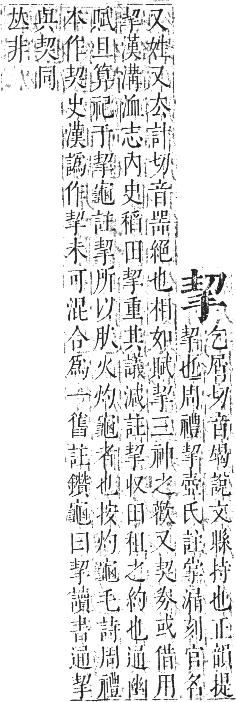 挈
乞屑切音鍥說文縣持也正韻提
挈也周禮挈壺氏註掌漏刻官名
又姓又去計切音器絕也相如賦挈三神之歡又契券或借用
挈漢溝洫志內史稻田挈重其議減註挈収田租之約也通幽
賦旦算祀于挈龜註挈所以肰火灼龜者也按灼龜毛詩周禮
本作契史漢譌作挈未可混合爲一舊註鑽龜曰挈讀書通挈
與契同
𠀤非